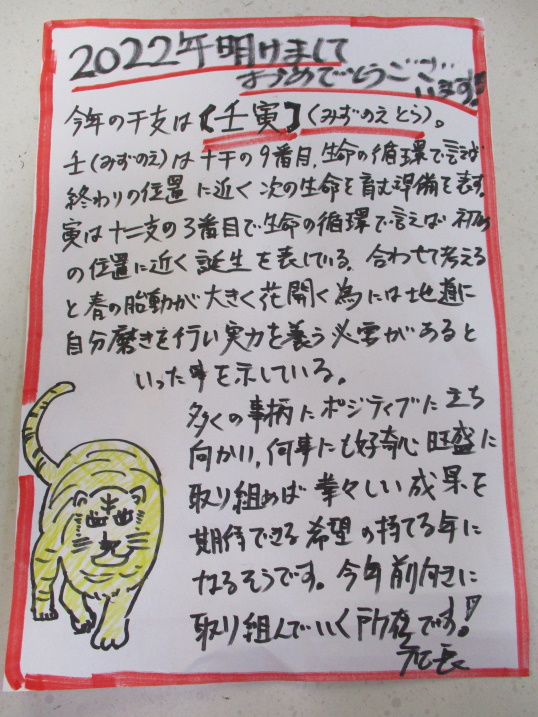 2022年明けまして
おめでとうござ
います!!
今年の干支は【壬寅】(みずのえとら)。
壬(みずのえ)は十干の9番目、生命の循環で言えば
終わりの位置に近く次の生命を育む準備を表す。
寅は十二支の3番目で生命の循環で言えば初め
の位置に近く誕生を表している。合わせて考える
と春の胎動が大きく花開く為には地道に
自分磨きを行い実力を養う必要があると
いった事を示している。
多くの事柄にポジティブに立ち
向かい、何事にも好奇心旺盛に
取り組めば華々しい成果を
期待できる希望の持てる年に
なるそうです。今年前向きに
取り組んでいく所存です!!